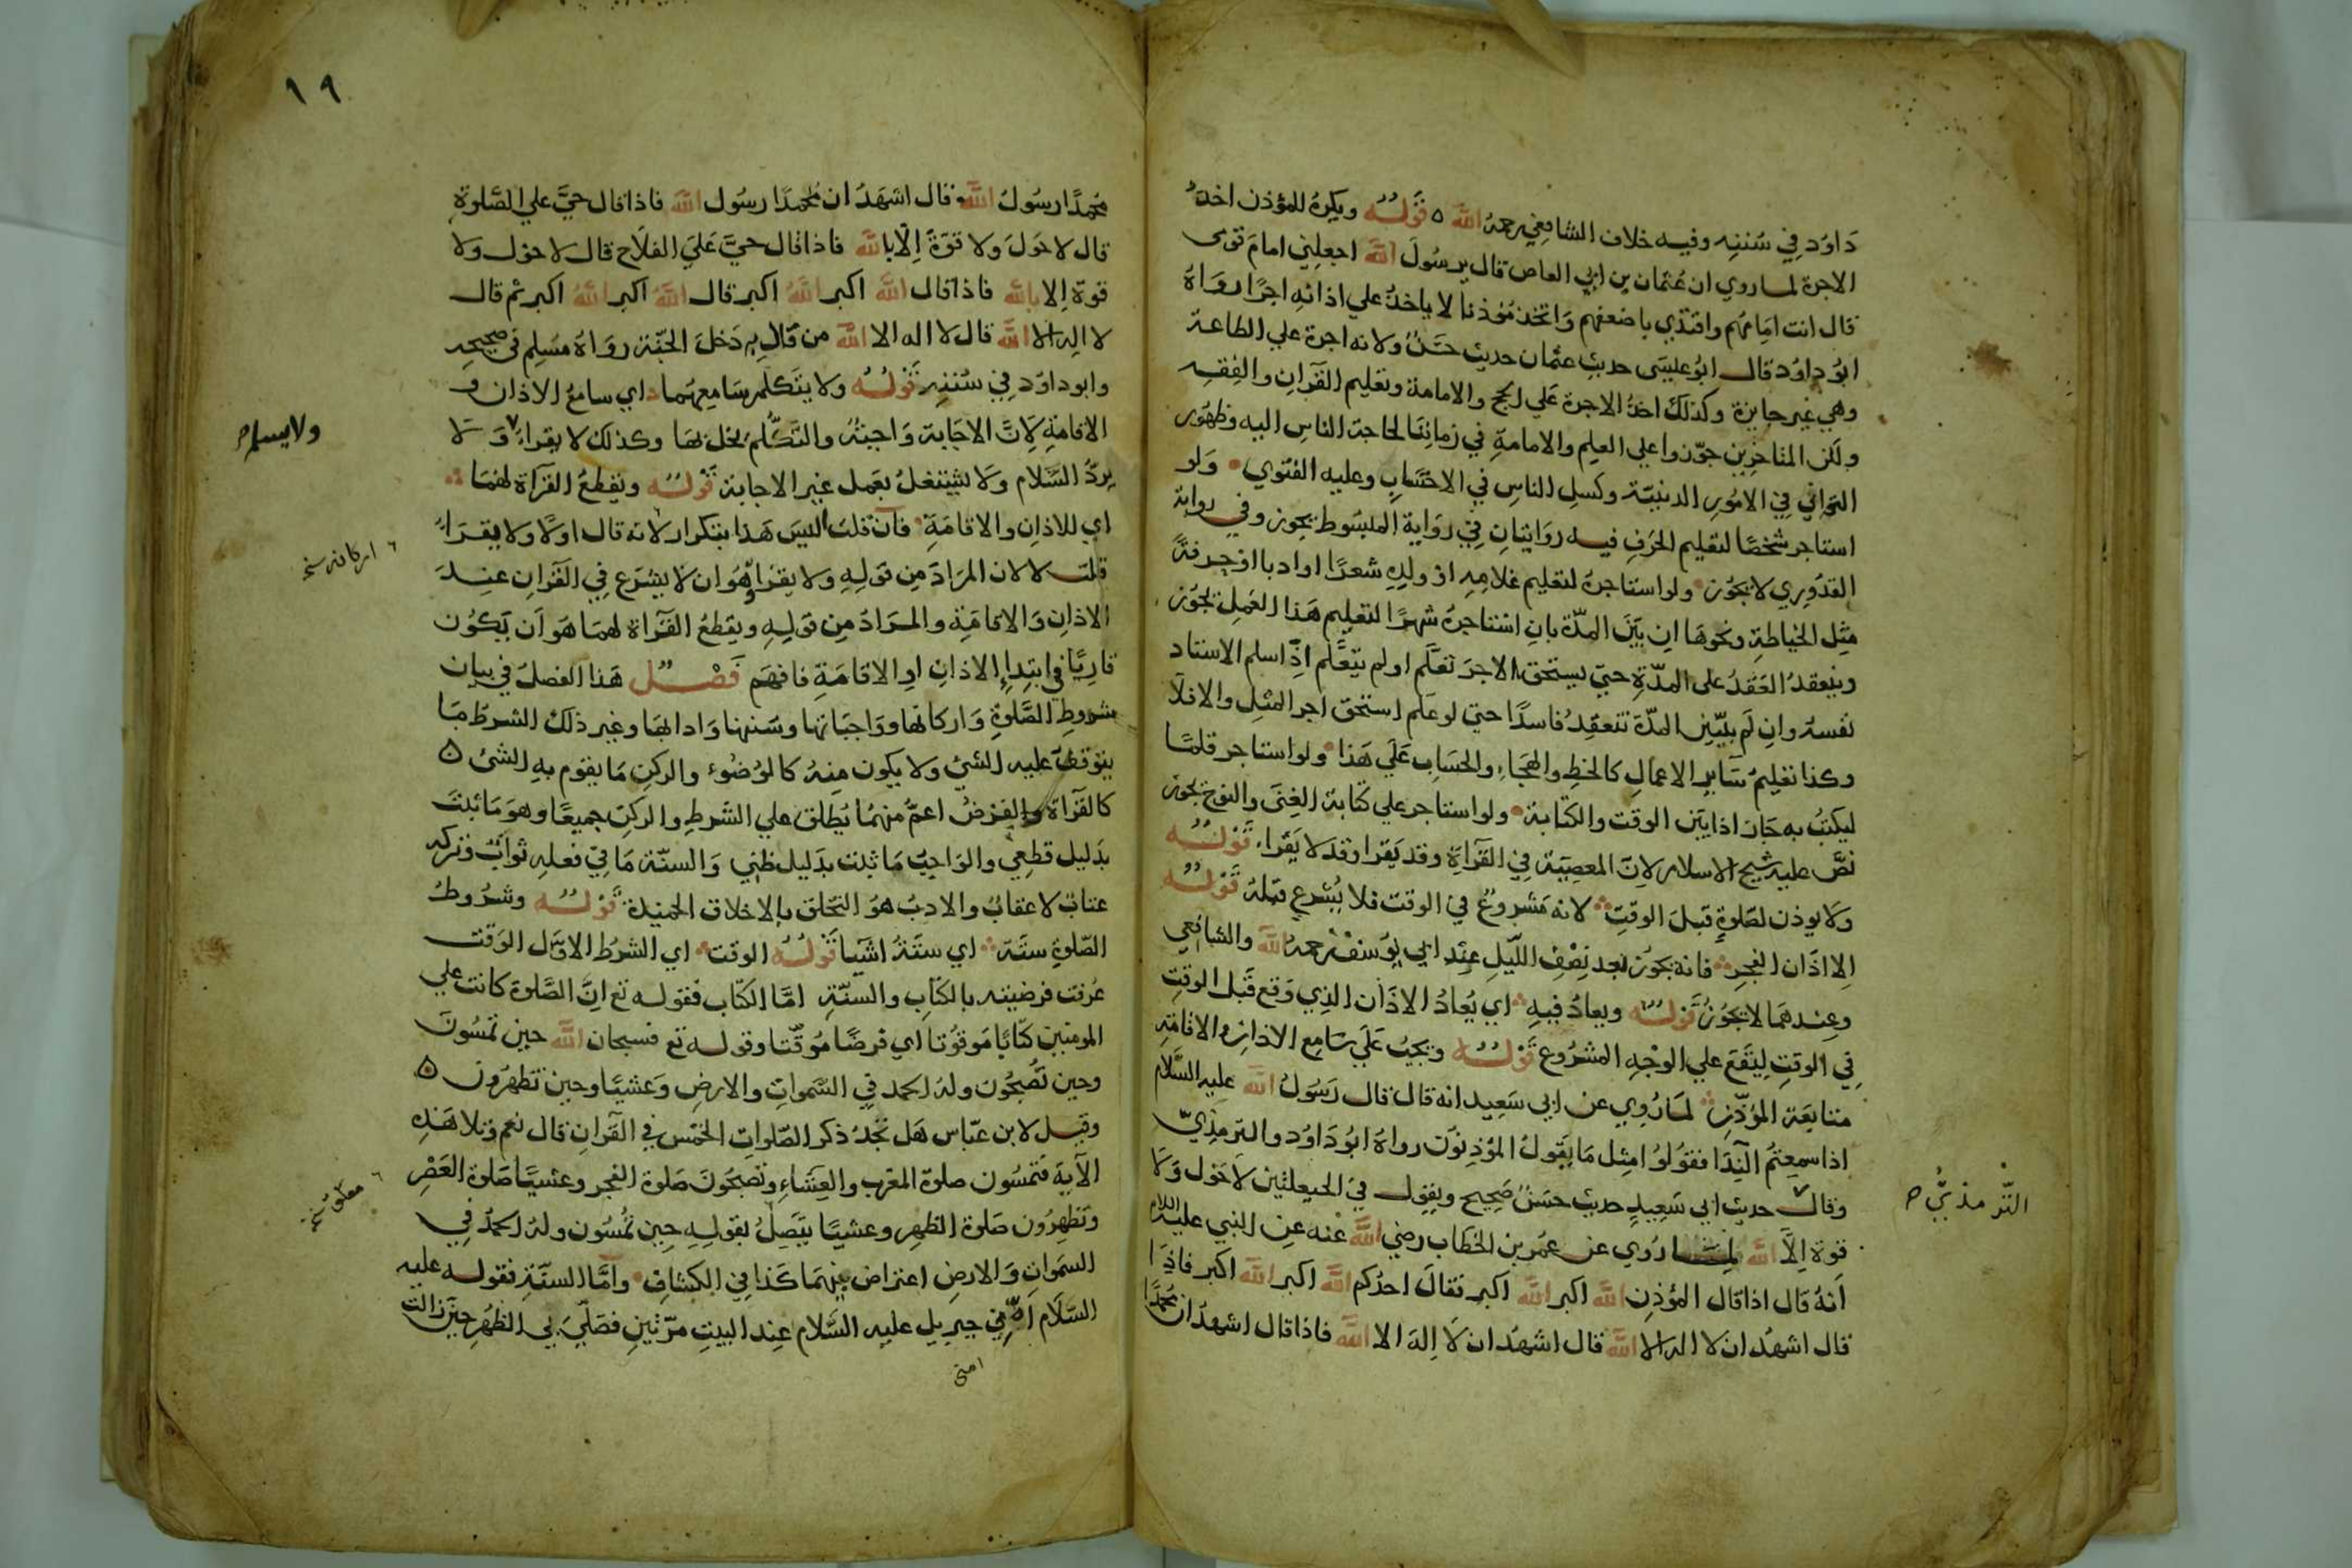 داود في سننه وفيه خلاف الشافعي رحمه الله ه قوله ويكره للمؤذن اخذ
الاجرة لما روي ان عثمان بن ابي العاص قال يرسول الله اجعلني امام قومى
قال انت امامهم واقتدي باضعفهم واتخذ مؤذنا لا ياخذ علي اذانه اجرا رواه
ابو داود قال ابو عليسى حديث عثمان حديث حسن ولانه اجرة علي الطاعة
وهي غير جايزة وكذلك اخذ الاجرة علي الحج والامامة وتعليم القران والفقه
ولكن المتاخرين جوزوا علي العلم والامامة في زماننا لحاجة الناس اليه وظهور
التواني في الامور الدينية وكسل الناس في الاحتساب وعليه الفتوي ولو
استاجر شخصا لتعليم الحرف فيه روايتان في رواية المبسوط يجوز وفي رواية
القدوري لا يجوز ولو استاجره لتعليم غلامه او ولده شعرا او ادبا او حرفة
مثل الخياطة ونحوها ان بين المدة بان استاجره شهرا لتعليم هذا العمل يجوز
وينعقد العقد على المدة حتي يستحق الاجر تعلم او لم يتعلم اذا سلم الاستاد
نفسه وان لم يبين المدة تنعقد فاسدا حتي لو علم استحق اجر المثل والا فلا
وكذا تعليم ساير الاعمال كالخط والهجاء والحساب علي هذا ولو استاجر قلما
ليكتب به جاز اذا بين الوقت والكتابة ولو استاجر علي كتابة الغنى والنوح يجوز
نص عليه شيخ الاسلام لان المعصية في القراة وقد يقرا وقد لا يقراء قوله
ولا يوذن لصلوة قبل الوقت لانه مشروع في الوقت فلا يشرع قبله قوله
الا اذان الفجر فانه يجوز بعد نصف الليل عند ابي يوسف رحمه الله والشافعي
وعندهما لا يجوز قوله ويعاد فيه اي يعاد الاذان الذي وقع قبل الوقت
في الوقت ليقع علي الوجه المشروع قوله ويجب علي سامع الاذان والاقامة
متابعة المؤذن لما روي عن ابي سعيد انه قال قال رسول الله عليه السلام
اذا سمعتم الندا فقولوا مثل ما يقول المؤذنون رواه ابو داود والترمذي
وقال حديث ابي سعيد حديث حسن صحيح ويقول في الحيعلتين لا حول ولا
قوة الا الله لما روي عن عمر بن الخطاب رضي الله عنه عن النبي عليه السلام
انه قال اذا قال المؤذن الله اكبر الله اكبر فقال احدكم الله اكبر الله اكبر فاذا
قال اشهد ان لا اله الا الله قال اشهد ان لا اله الا الله فاذا قال اشهد ان محمدا
الترمذي ح
١٩
محمدا رسول الله قال اشهد ان محمدا رسول الله فاذا قال حي علي الصلوة
قال لا حول ولا قوة الا بالله فاذا قال حي علي الفلاح قال لا حول ولا
قوة الا بالله فاذا قال الله اكبر الله اكبر قال الله اكبر الله اكبر ثم قال
لا اله الا الله قال لا اله الا الله من قلبه دخل الجنة رواه مسلم في صحيحه
وابو داود في سننه قوله ولا يتكلم سامعهما اي سامع الاذان و
الاقامة لان الاجابة واجبة والتكلم يخل بها وكذلك لا يقراء ولا
يرد السلام ولا يشتغل بعمل غير الاجابة قوله ويقطع القراة لهما
اي للاذان والاقامة فان قلت اليس هذا بتكرار لانه قال اولا ولا يقراء
قلت لا لان المراد من قوله ولا يقرا هو ان لا يشرع في القران عند
الاذان والاقامة والمراد من قوله ويقطع القراة لهما هو ان يكون
قاريا في ابتداء الاذان او الاقامة فافهم فصل هذا الفصل في بيان
شروط الصلوة واركانها وواجباتها وسننها وادابها وغير ذلك الشرط ما
يتوقف عليه الشئ ولا يكون منه كالوضوء والركن ما يقوم به الشئ ه
كالقراة والفرض اعم منهما يطلق علي الشرط والركن جميعا وهو ما ثبت
بدليل قطعي والواجب ما ثبت بدليل ظني والسنة ما في فعله ثواب وتركه
عتاب لا عقاب والادب هو التخلق بالاخلاق الحميدة قوله وشروط
الصلوة ستة اي ستة اشيا قوله الوقت اي الشرط الاول الوقت
عرفت فرضيته بالكتاب والسنة اما الكتاب فقوله تع ان الصلوة كانت علي
المومنين كتابا موقوتا اي فرضا موقتا وقوله تع فسبحان الله حين تمسون
وحين تصبحون وله الحمد في السموات والارض وعشيا وحين تظهرون ه
وقيل لابن عباس هل تجد ذكر الصلوات الخمس في القران قال نعم وتلا هذه
الآية فتمسون صلوة المغرب والعشاء وتصبحون صلوة الفجر وعشيا صلوة العصر
وتظهرون صلوة الظهر وعشيا يتصل بقوله حين تمسون وله الحمد في
السموات والارض اعتراض بينهما كذا في الكشاف واما السنة فقوله عليه
السلام امني جبريل عليه السلام عند البيت مرتين فصلي بي الظهر حين زالت
امنى
ولا يسلم ح
٦ اركانه نسخ